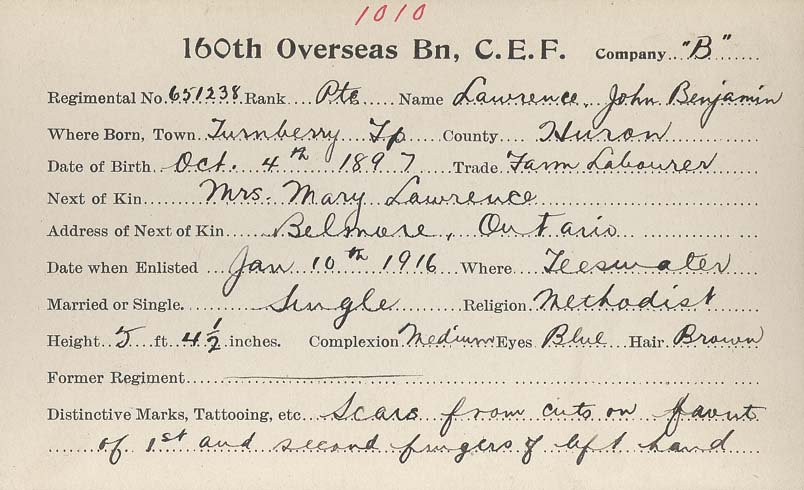 1010
160th Overseas Bn, C.E.F. Company "B"
Regimental No. 651238 Rank Pte Name Lawrence, John Benjamin
Where Born, Town Turnberry Tp County Huron
Date of Birth Oct. 4th 1897 Trade Farm Labourer
Next of Kin Mrs. Mary Lawrence
Address of Next of Kin Belmore, Ontario
Date when Enlisted Jan 10th 1916 Where Teeswater
Married or Single. Single Religion Methodist
Height 5 ft. 4 1/2 inches. Complexion Medium Eyes Blue Hair Brown
Former Regiment
Distinctive Marks, Tattooing, etc. Scars from cuts on
of 1st and second fingers of left hand